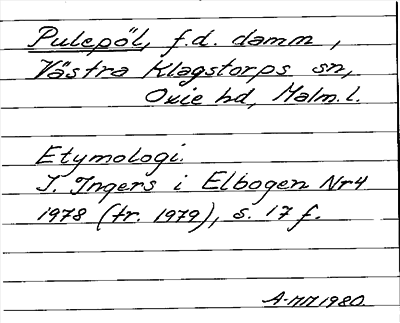 Pulepöl, f.d. damm,
Västra Klagstorps sn,
Oxie hd, Malm. l.
Etymologi.
I. Ingers i Elbogen Nr 4
1978 (tr. 1979), s. 17 f.
A-MM 1980